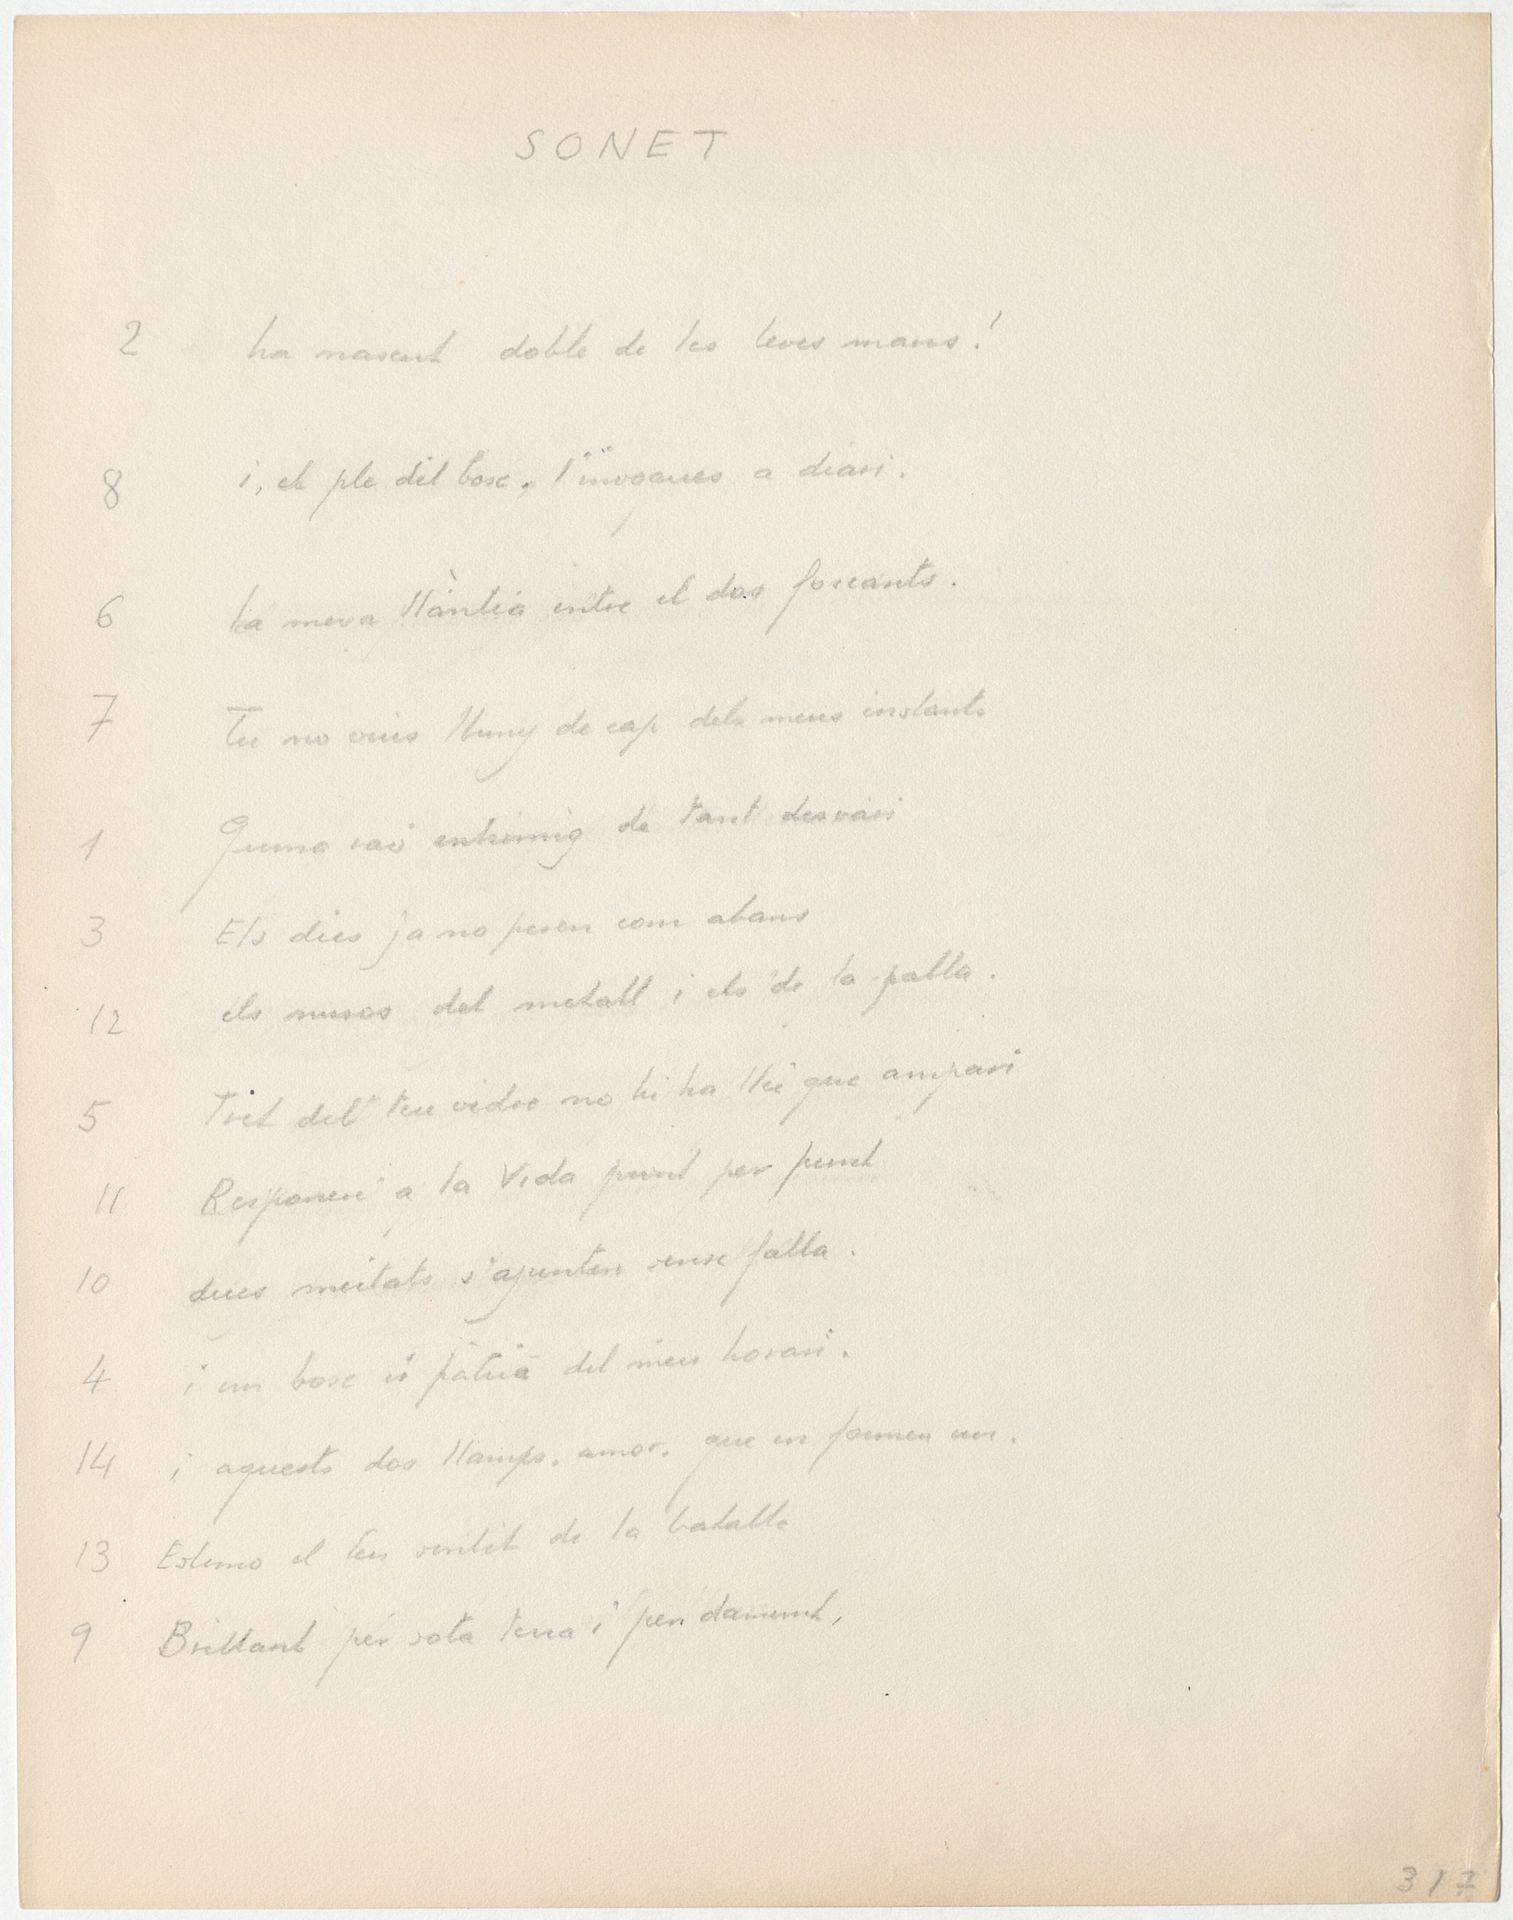 SONET
2 ha nascut doble de les teves mans!
8 i, el ple del bosc, l'inogues a diari.
6 la meva llàntia entre el dos foscants.
7 Tu no vius lluny de cap dels meus instants
1 Quina saó entremig de tant desvari
3 Els dies ja no pesen com abans
12 els nusos del metall i els de la palla.
5 Tret del teu vidre no hi ha llei que ampari
11 Respondré a la Vida punt per punt
10 dues meitats s'ajunten sense falla.
4 i un bosc és pàtria del meu horari.
14 i aquests dos llamps, amor, que en formen un.
13 Estimo el teu sentit de la batalla
9 Brillant per sota terra i per damunt,
317